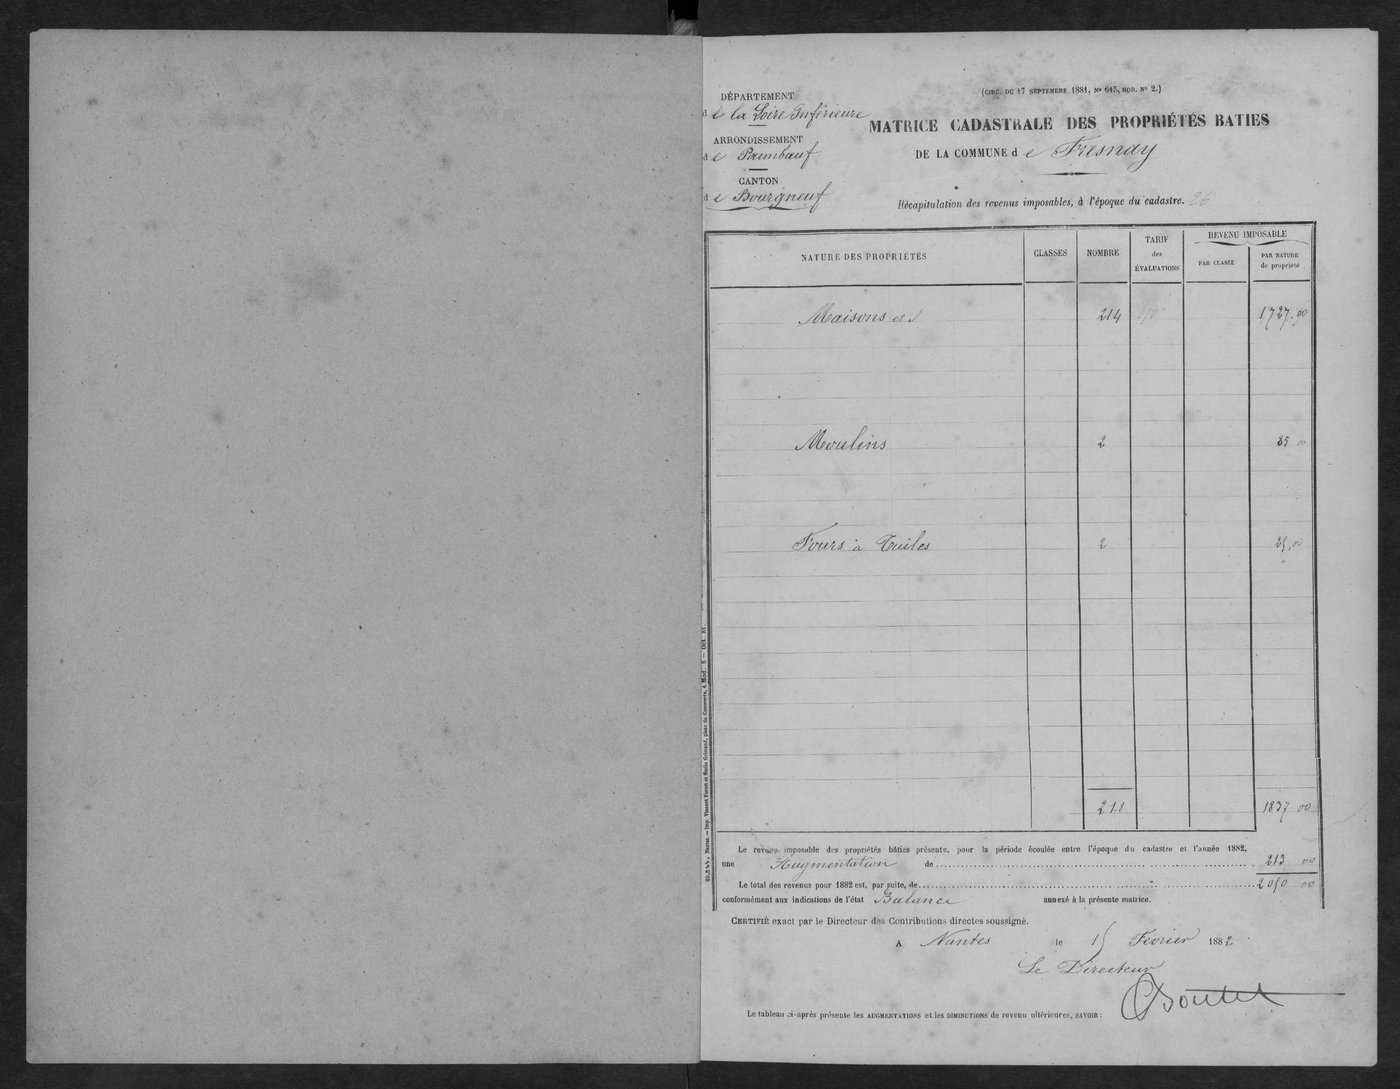 DÉPARTEMENT
de la Loire Inférieure
ARRONDISSEMENT
de Paimbœuf
CANTON
de Bourgneuf
(CIRC. DU 17 SEPTEMBRE 1881, No 615, MOD. No 2.)
MATRICE CADASTRALE DES PROPRIÉTÉS BATIES
DE LA COMMUNE de Fresnay
Récapitulation des revenus imposables, à l'époque du cadastre. 26
NATURE DES PROPRIÉTÉS CLASSES NOMBRE TARIF des ÉVALUATIONS REVENU IMPOSABLE
PAR CLASSE PAR NATURE de propriété
Maisons 214 1727.00
Moulins 2 85 00
Fours à Tuiles 2 25,00
218 1837 00
Le revenu imposable des propriétés bâties présente, pour la période écoulée entre l'époque du cadastre et l'année 1882,
une Augmentation de 213 00
Le total des revenus pour 1882 est, par suite, de 2050 00
conformément aux indications de l'état Balance annexé à la présente matrice.
CERTIFIÉ exact par le Directeur des Contributions directes soussigné.
A Nantes le 15 Février 1882
Le Directeur
Le tableau ci-après présente les AUGMENTATIONS et les DIMINUTIONS de revenu ultérieures, SAVOIR :